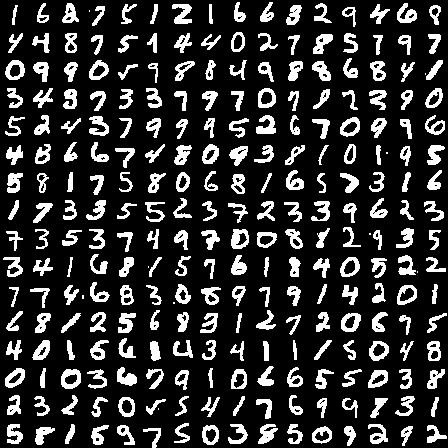 1 6 8 7 5 1 2 1 6 6 3 2 9 4 6 9
4 4 8 7 5 1 4 4 0 2 7 8 5 7 9 7
0 9 9 0 5 9 8 8 4 9 8 8 6 8 4 1
3 4 3 7 3 3 7 9 7 0 9 1 2 3 9 0
5 2 4 3 7 9 9 9 5 2 6 7 0 9 9 6
4 8 6 6 7 4 8 0 9 3 8 1 0 1 9 5
5 8 1 7 5 8 0 6 8 1 6 5 7 3 1 6
1 7 3 3 5 5 2 3 7 2 3 3 9 6 2 3
7 3 5 3 7 4 9 7 0 0 8 8 2 9 3 5
3 4 1 6 8 1 5 7 6 1 8 4 0 5 2 2
7 7 4 6 8 3 0 8 9 7 9 1 4 2 0 1
6 8 1 2 5 6 8 3 1 2 7 2 0 6 9 5
4 0 1 6 6 1 4 3 4 1 1 1 5 0 4 8
0 1 0 3 6 7 9 1 0 6 6 5 5 0 3 8
2 3 2 5 0 5 5 4 1 7 6 9 9 7 3 1
5 8 1 8 9 7 5 0 3 8 5 0 9 2 9 2